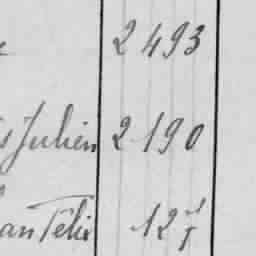 2 493
s Julien 2 190
an Félix 12